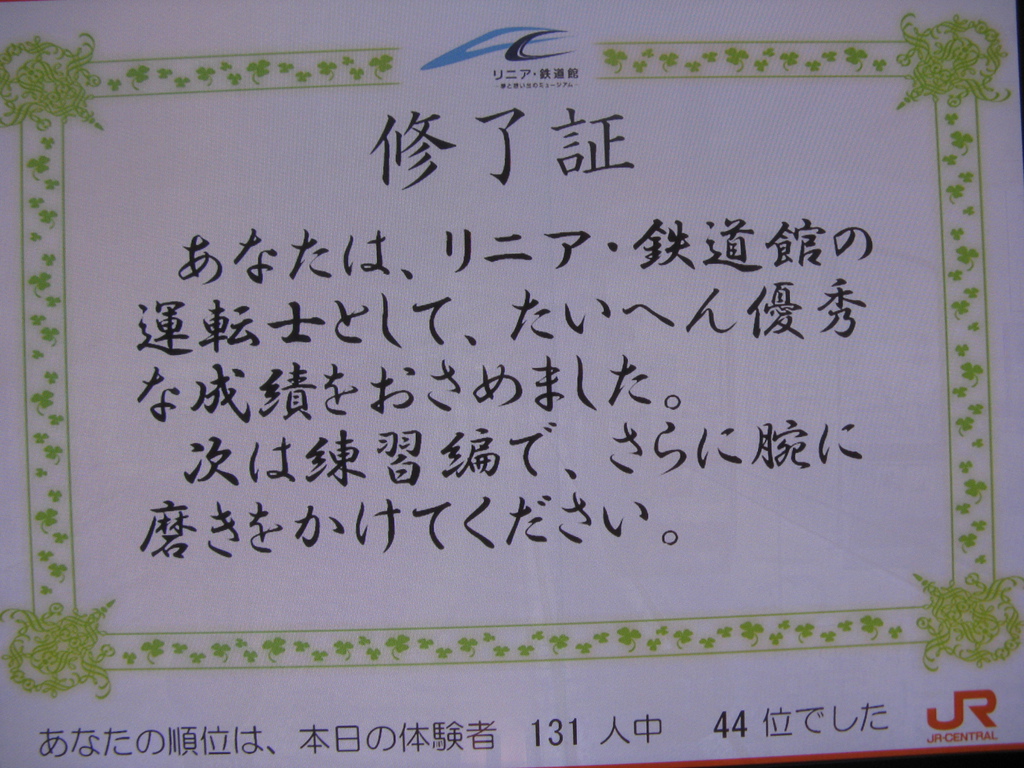 リニア・鉄道館
夢と想い出のミュージアム
修了証
あなたは、リニア・鉄道館の
運転士として、たいへん優秀
な成績をおさめました。
次は練習編で、さらに腕に
磨きをかけてください。
あなたの順位は、本日の体験者 131 人中 44 位でした
JR
JR-CENTRAL